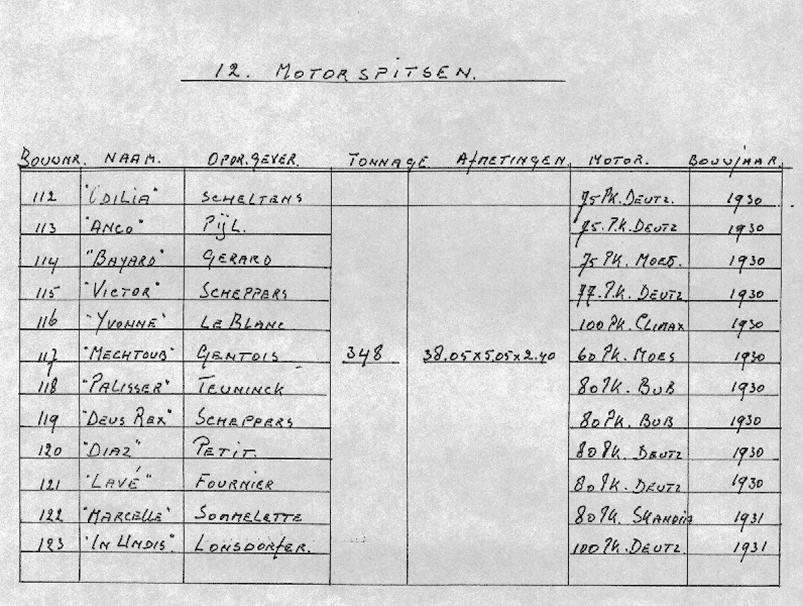 12. MOTORSPITSEN.
BOUWNR. NAAM. OPDR.GEVER. TONNAGE AFMETINGEN. MOTOR. BOUWJAAR.
112 "ODILIA" SCHELTENS 75 PK. DEUTZ. 1930
113 "ANCO" PIJL. 75. P.K. DEUTZ 1930
114 "BAYARD" GERARD 75 PK. MOES. 1930
115 "VICTOR" SCHEPPERS 77. P.K. DEUTZ 1930
116 "YVONNE" LE BLANC 100 PK. CLIMAX 1930
117 "MECHTOUB" GENTOIS 348 38.05x5.05x2.40 60 PK. MOES 1930
118 "PALISSER" TEUNINCK 80 PK. BUB 1930
119 "DEUS REX" SCHEPPERS 80 PK. BUB 1930
120 "DIAZ" PETIT. 80 PK. DEUTZ 1930
121 "LAVÉ" FOURNIER 80 PK. DEUTZ 1930
122 "MARCELLE" SOMMELETTE 80 PK. SKANDIA 1931
123 "IN UNDIS". LONSDORFER. 100 PK. DEUTZ. 1931